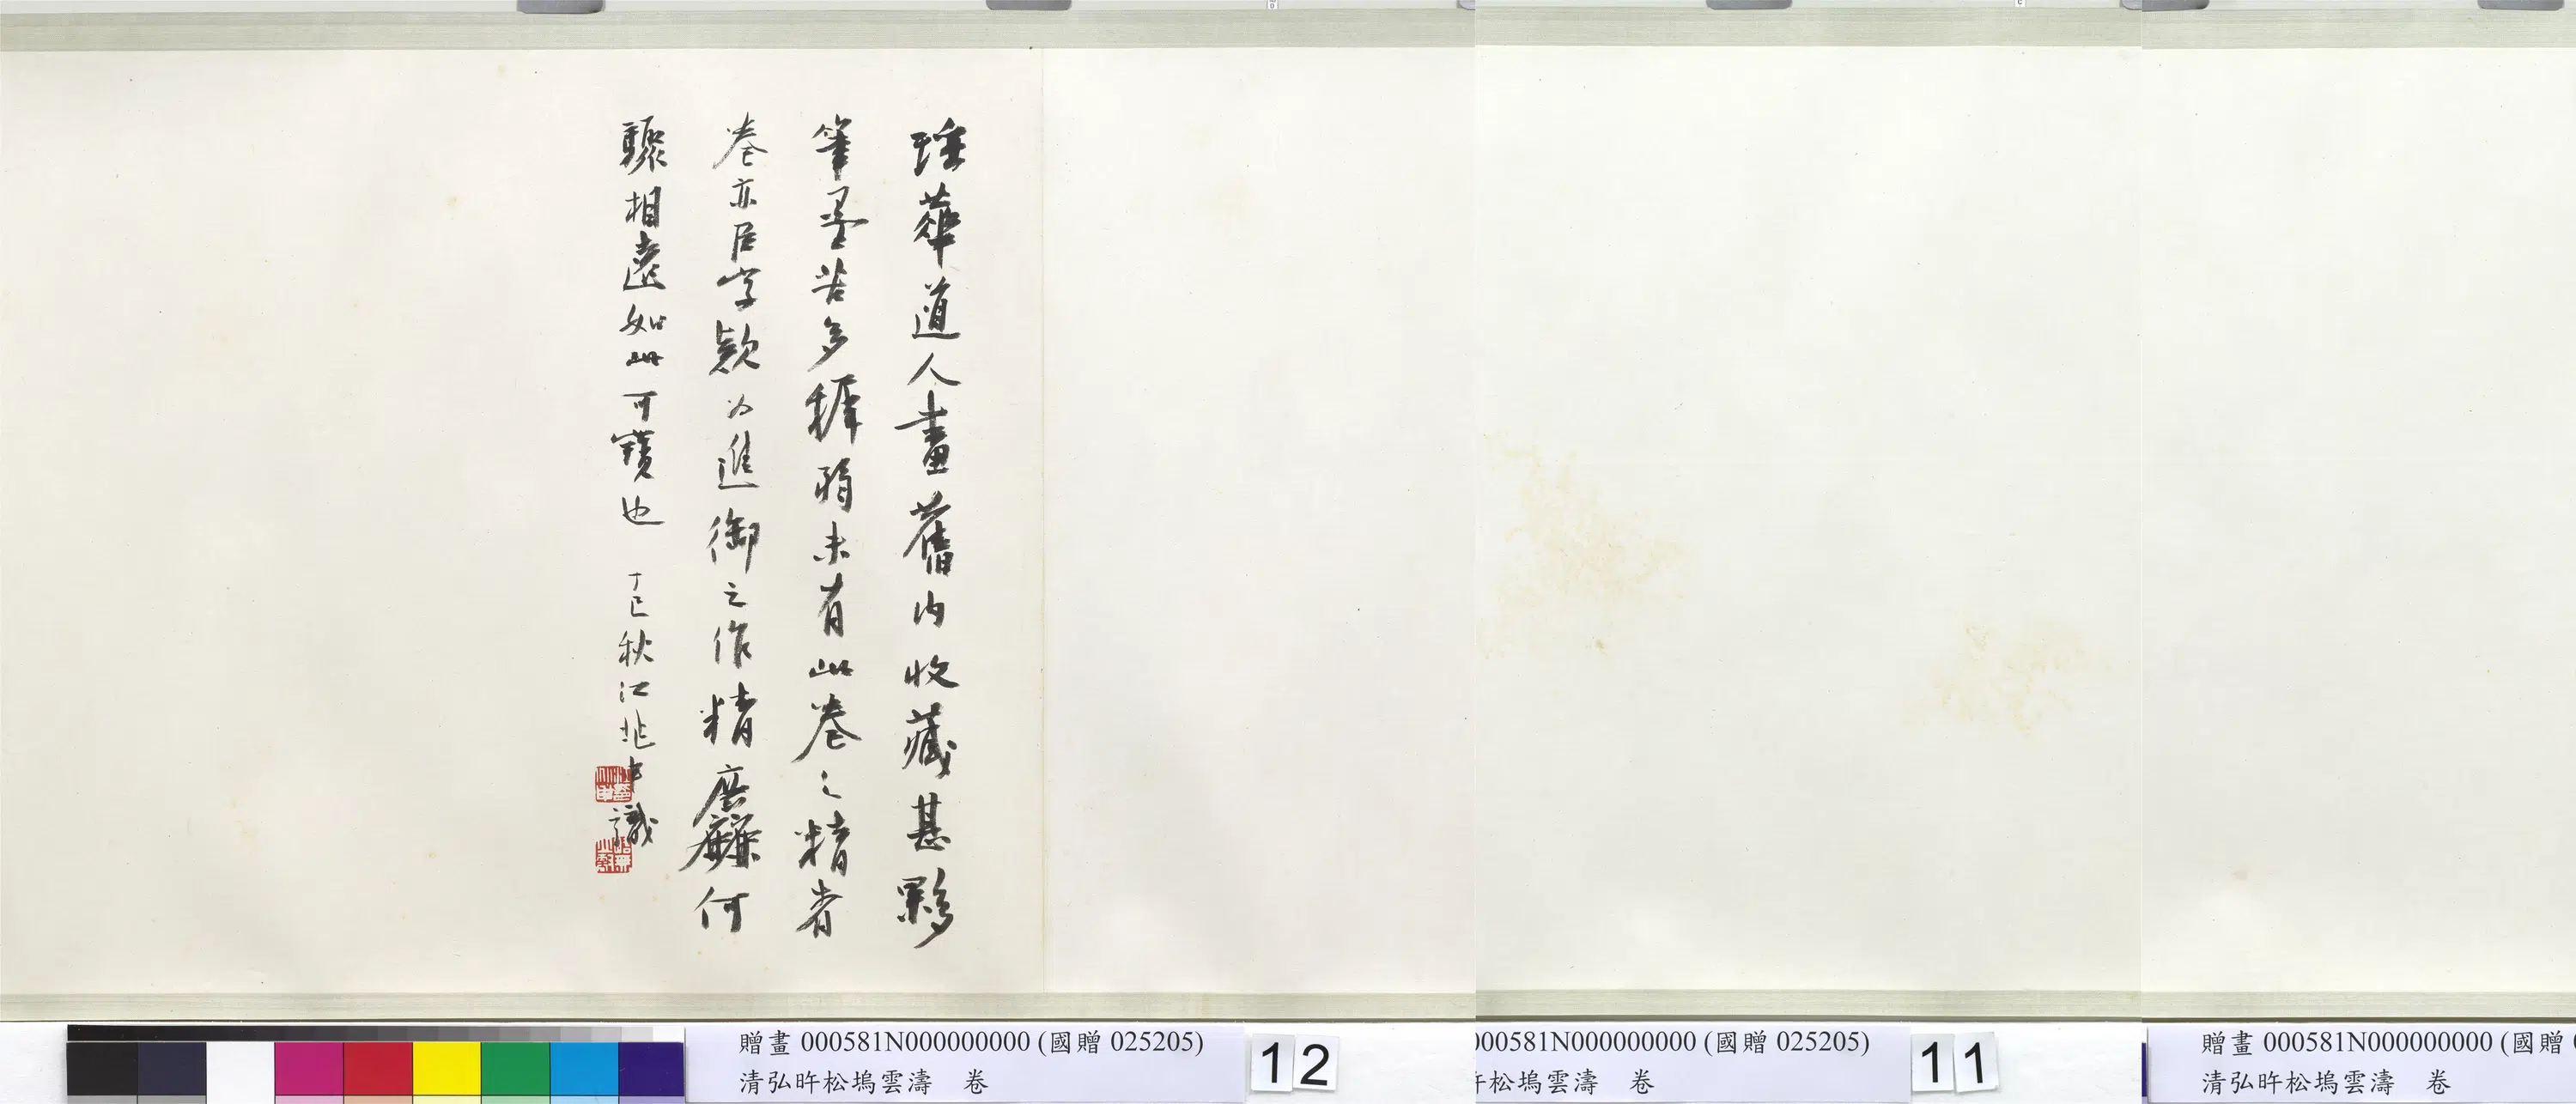 瑤華道人畫舊內收藏甚夥
筆墨苦多穉弱未有此卷之精者
卷亦臣字款為進御之作精麄何
驟相遠如此可寶也
丁巳秋江兆申識
贈畫 000581N000000000 (國贈 025205)
清弘旿松塢雲濤 卷
12
000581N000000000 (國贈 025205)
松塢雲濤 卷
11
贈畫 000581N000000000 (國贈
清弘旿松塢雲濤 卷